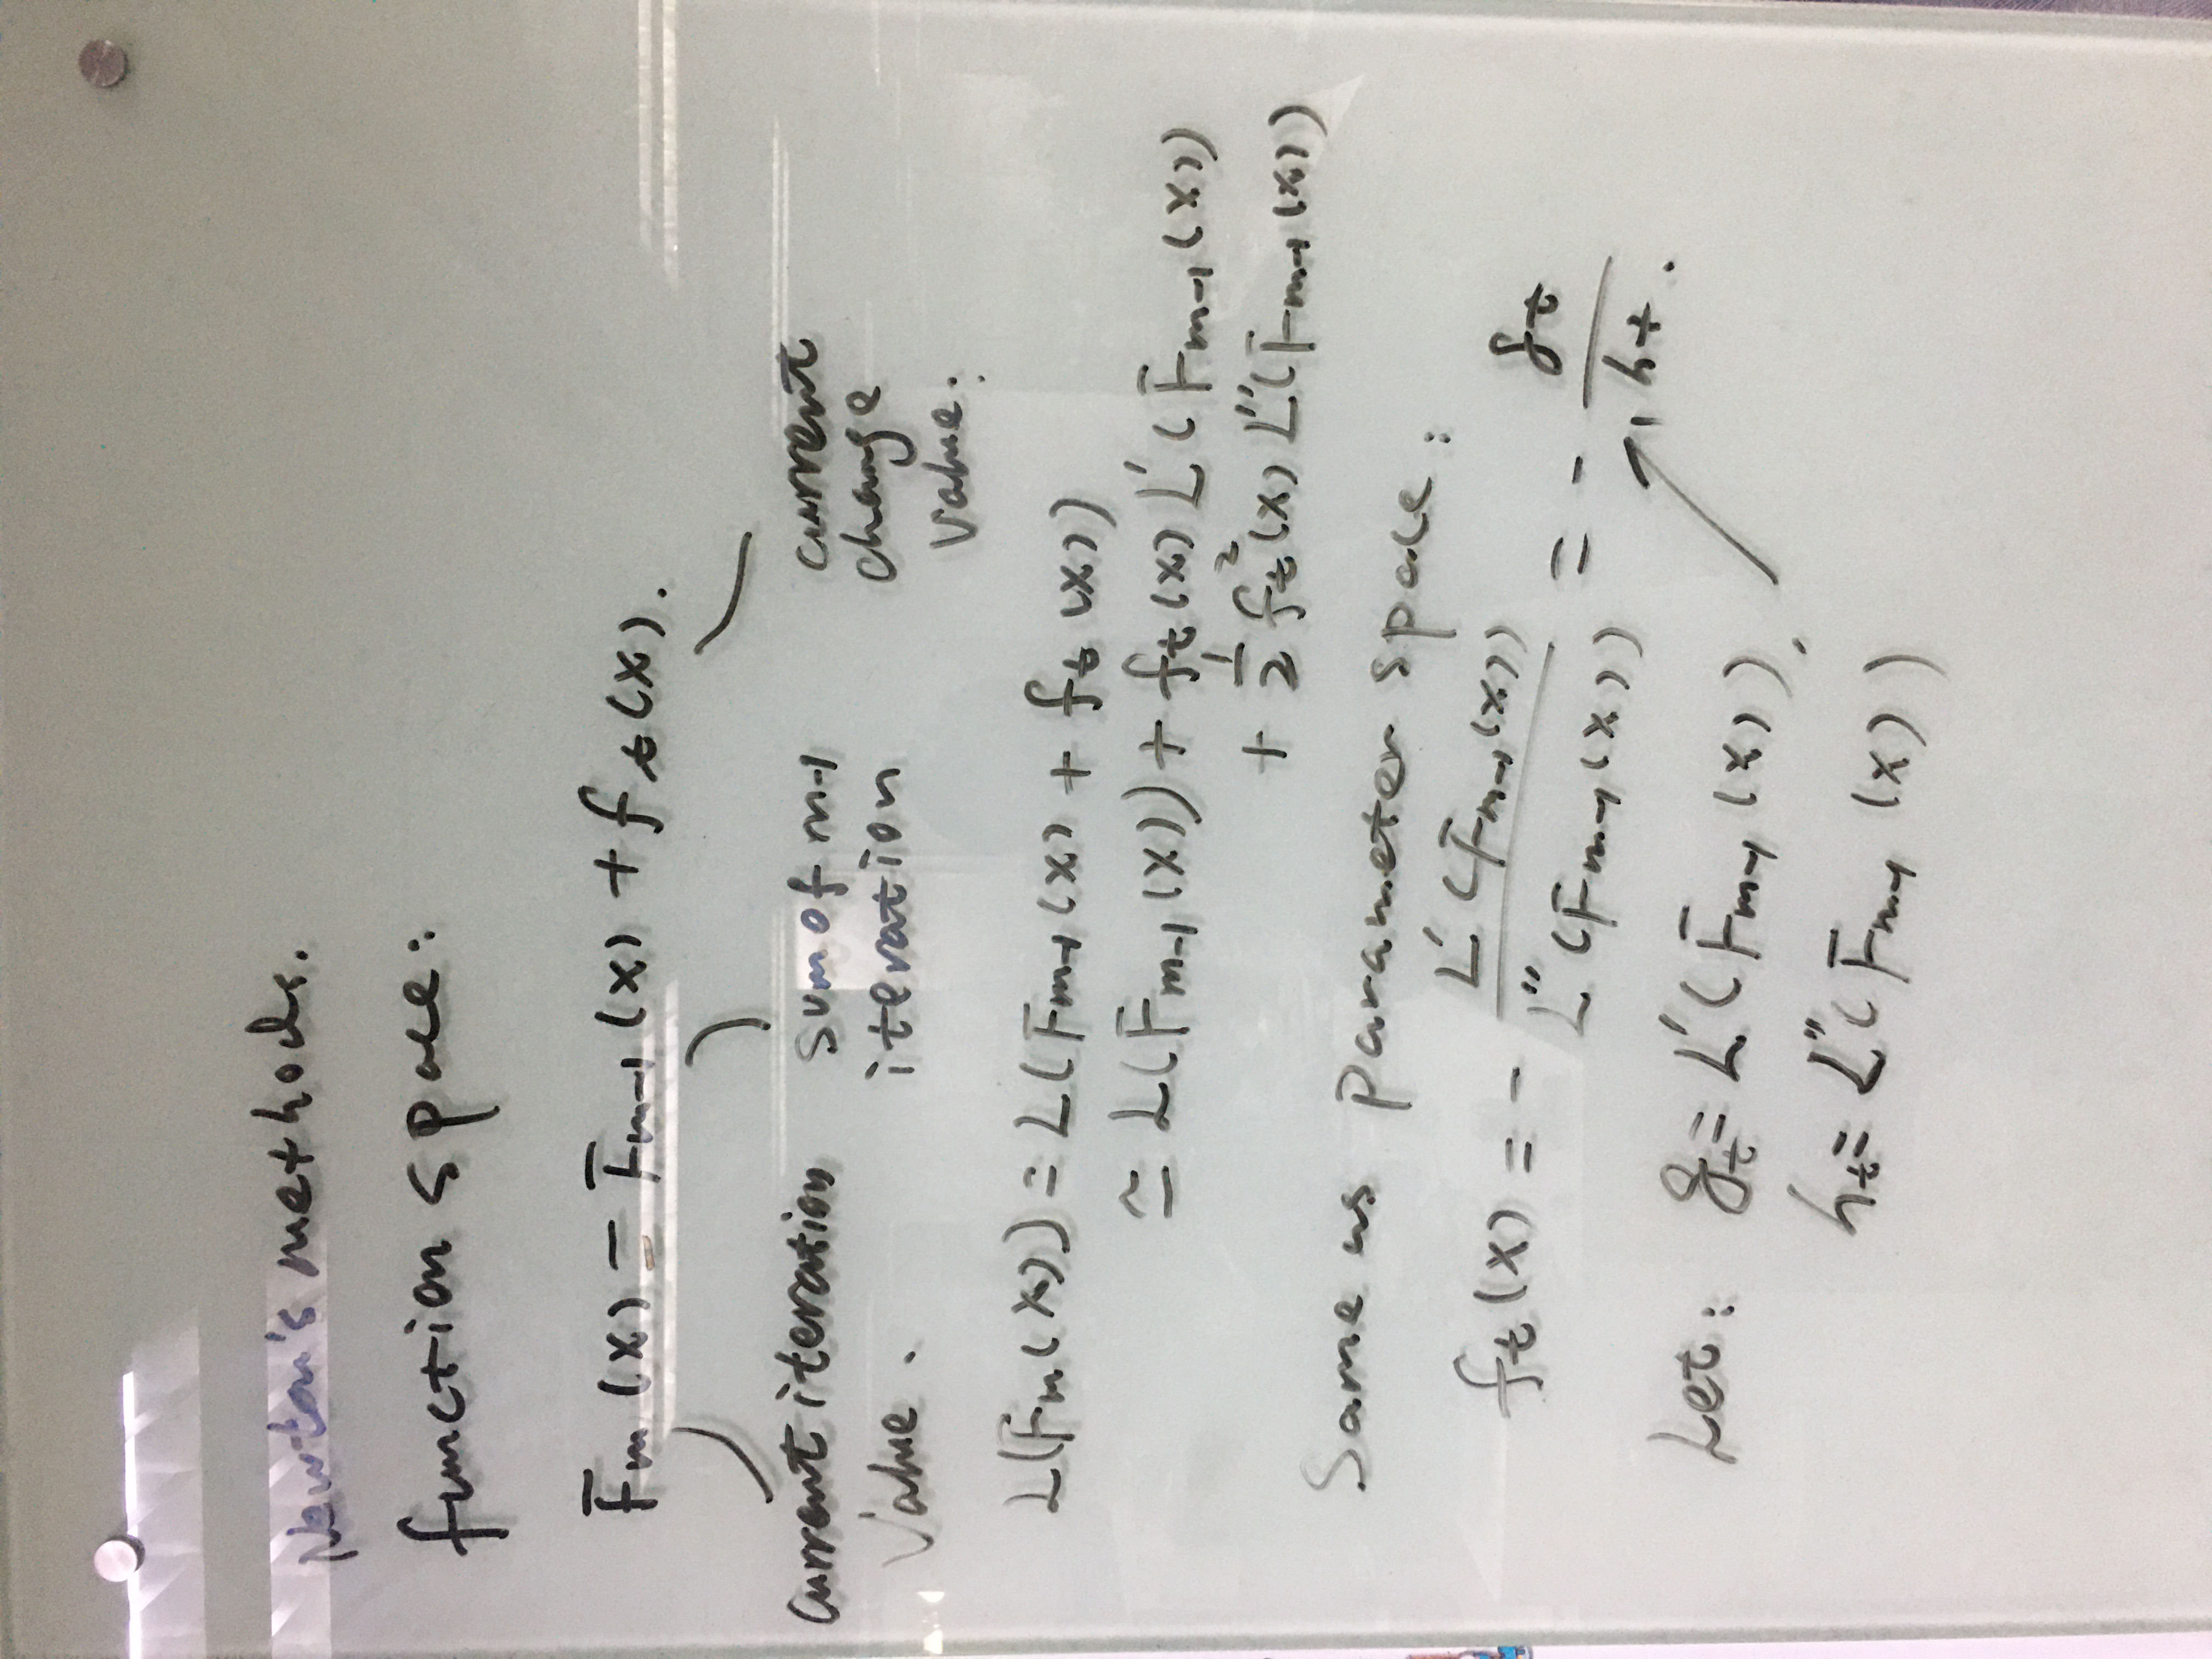 Newton's methods.
function space:
Fm(x) = Fm-1(x) + ft(x).
current iteration value.
sum of m-1 iteration
current change value.
L(Fm(x)) = L(Fm-1(x) + ft(x))
≃ L(Fm-1(x)) + ft(x) L'(Fm-1(x))
+ 1/2 ft²(x) L''(Fm-1(x))
Same as parameter space:
ft(x) = - L'(Fm-1(x)) / L''(Fm-1(x)) = - gt / ht.
Let: gt = L'(Fm-1(x)),
ht = L''(Fm-1(x))